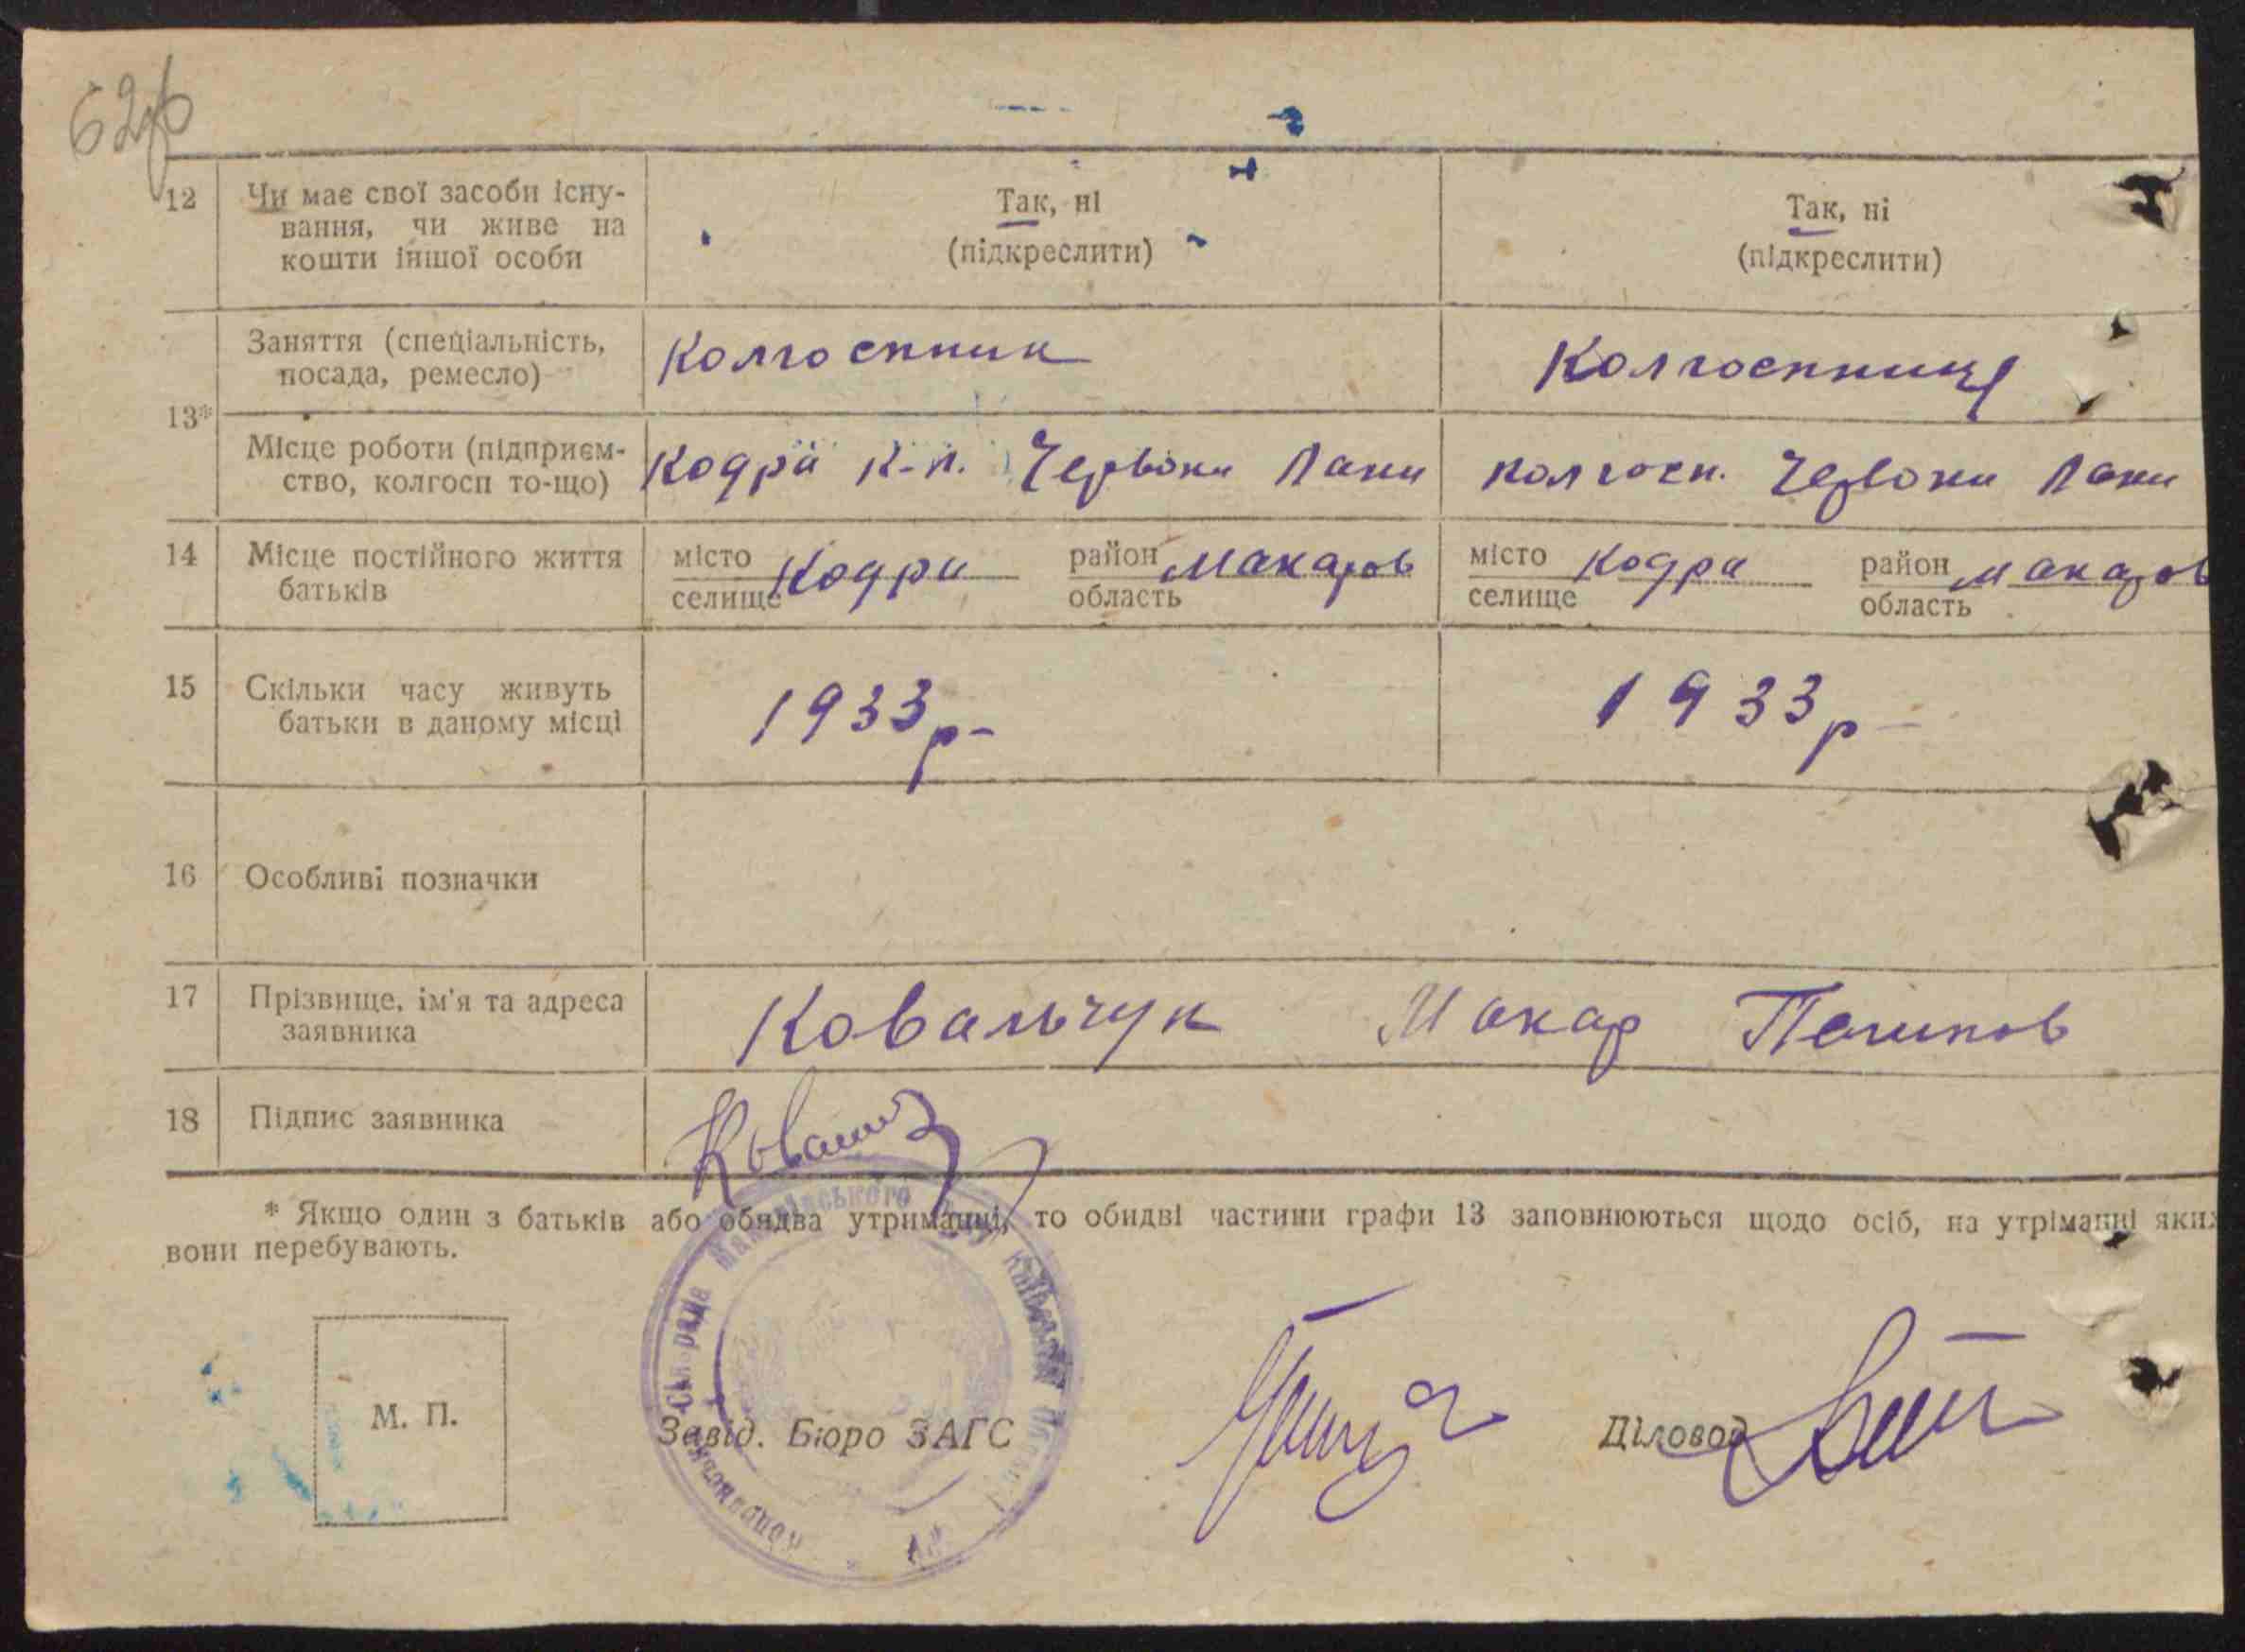 62об
12 Чи має свої засоби існу- Так, ні Так, ні
вання, чи живе на
кошти іншої особи (підкреслити) (підкреслити)
Заняття (спеціальність, Колгоспник Колгоспниця
посада, ремесло)
13*
Місце роботи (підприєм- Кодра к-п. Червони Лани колгосп. Червони Лани
ство, колгосп то-що)
14 Місце постійного життя місто Кодра район Макаров місто Кодра район Макаров
батьків селище область селище область
15 Скільки часу живуть 1933р- 1933р-
батьки в даному місці
16 Особливі позначки
17 Прізвище, ім'я та адреса Ковальчук Макар
заявника
18 Підпис заявника
* Якщо один з батьків або обидва утриманці, то обидві частини графи 13 заповнюються щодо осіб, на утріманні яких
вони перебувають.
М. П.
Завід. Бюро ЗАГС Діловод
Сільрада Макарівського Київської